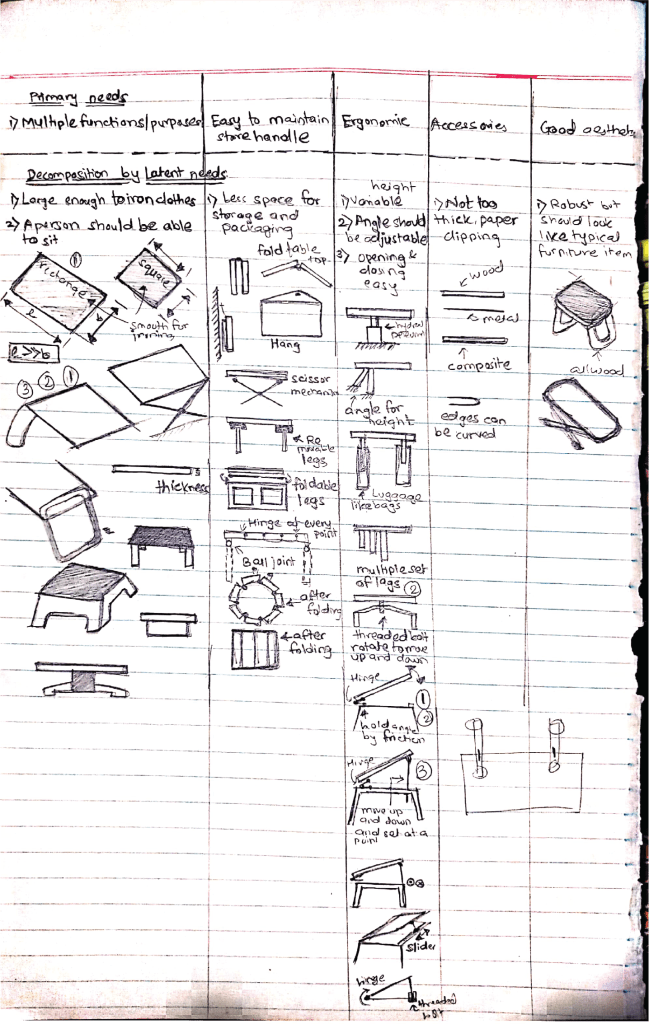 Primary needs
1) Multiple functions/purposes
Easy to maintain
store handle
Ergonomic
Accessories
Good aesthetic
Decomposition by Latent needs
1) Large enough to iron clothes
2) A person should be able
to sit
①
square
l
b
smooth for
ironing
l >> b
③ ② ①
thickness
1) Less space for
storage and
packaging
fold table
top
Hang
scissor
mechanism
Re
movable
legs
foldable
legs
Hinge at every
point
Ball joint
after
folding
after
folding
height
1) Variable
2) Angle should
be adjustable
3) opening &
closing
easy
angle for
height
Luggage
like bags
multiple set
of legs
②
threaded bolt
rotate to move
up and down
Hinge
①
②
hold angle
by friction
Hinge
③
move up
and down
and set at a
point
slider
hinge
threaded
bolt
1) Not too
thick, paper
clipping
wood
metal
composite
edges can
be curved
1) Robust but
should look
like typical
furniture item
all wood